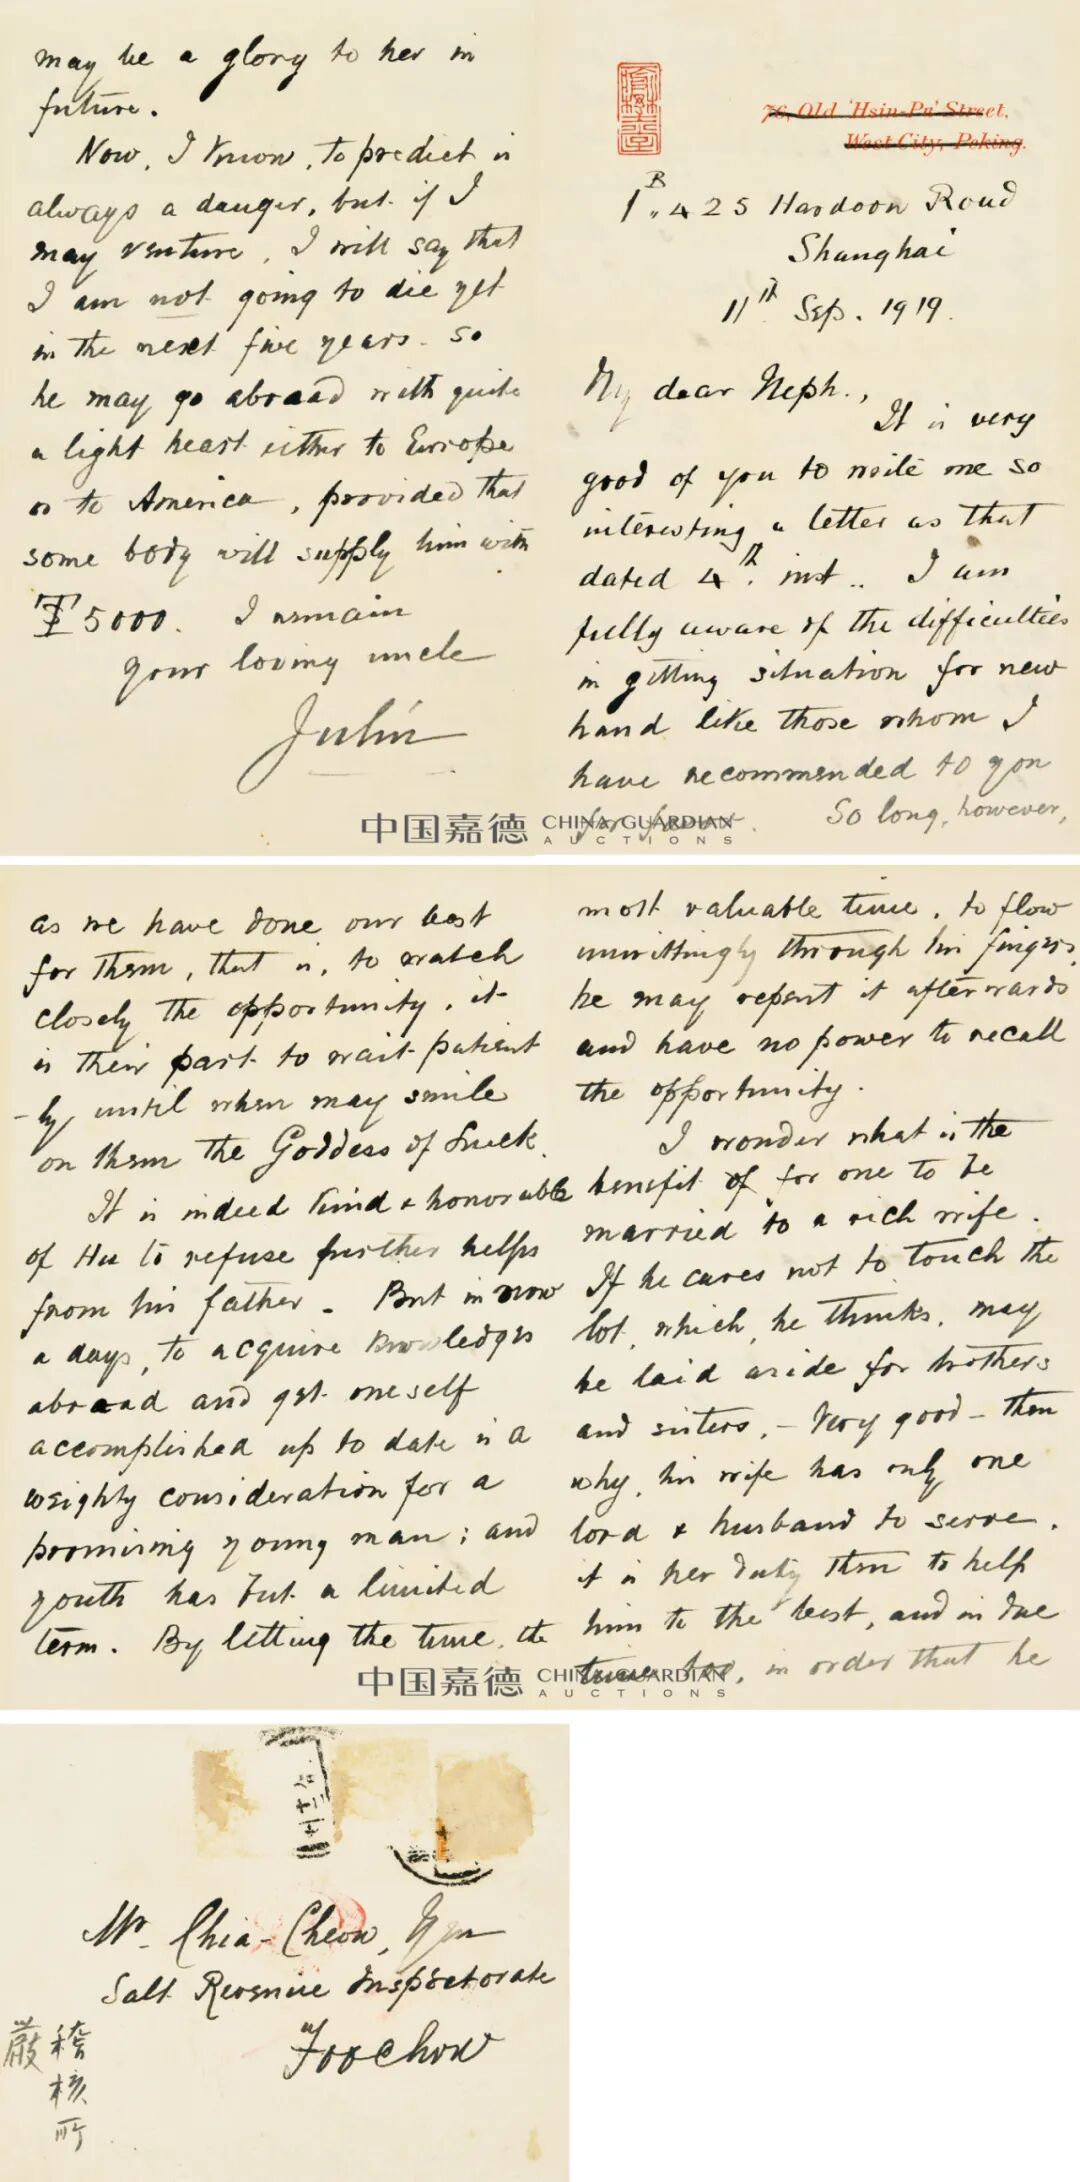 76, Old 'Hsin-Pu' Street,
West City, Peking.
B
1. 425 Hardoon Road
Shanghai
11th Sep. 1919.
My dear Neph.,
It is very
good of you to write me so
interesting a letter as that
dated 4th. inst.. I am
fully aware of the difficulties
in getting situation for new
hand like those whom I
have recommended to you
So long, however,
as we have done our best
for them, that is, to watch
closely the opportunity, it
is their part to wait patient
-ly until when may smile
on them the Goddess of Luck.
It is indeed kind & honorable
of Hu to refuse further helps
from his father. But in now
a days, to acquire knowledges
abroad and get oneself
accomplished up to date is a
weighty consideration for a
promising young man; and
youth has but a limited
term. By letting the time, the
most valuable time, to flow
unwittingly through his fingers,
he may repent it afterwards
and have no power to recall
the opportunity.
I wonder what is the
benefit of for one to be
married to a rich wife.
If he cares not to touch the
lot, which, he thinks, may
be laid aside for brothers
and sisters, - Very good - then
why, his wife has only one
lord & husband to serve.
it is her duty then to help
him to the best, and in due
time too, in order that he
may be a glory to her in
future.
Now, I know, to predict is
always a danger, but if I
may venture, I will say that
I am not going to die yet
in the next five years. So
he may go abroad with quite
a light heart either to Europe
or to America, provided that
some body will supply him with
5000. I remain
your loving uncle
Julin
中国嘉德 CHINA GUARDIAN
AUCTIONS
中国嘉德 CHINA GUARDIAN
AUCTIONS
Mr. Chia-Cheow, Yen
Salt Revenue Inspectorate
Foochow
稽核所
嚴